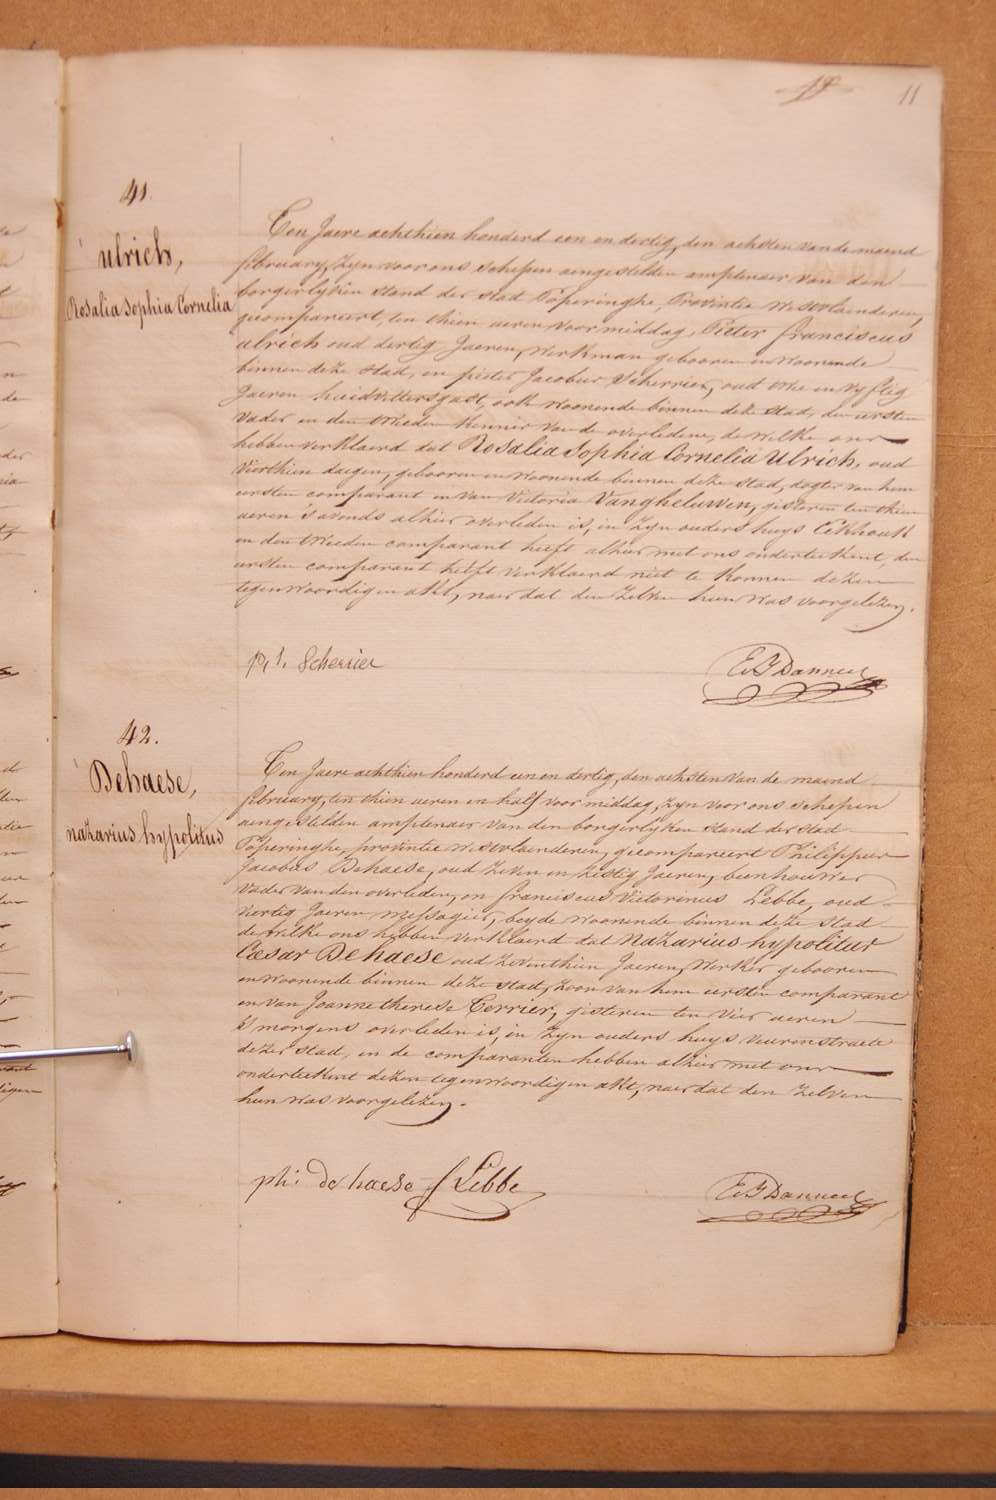 11
41.
Ulrich,
Rosalia Sophia Cornelia
Ten Jaere achthien honderd een en dertig, den achsten van de maend
february, Zyn voor ons schepen aengestelden amptenaer van den
borgerlyken stand der stad Poperinghe, Provintie Westvlaenderen,
gecompareert, ten thien ueren voormiddag, Pieter franciscus
ulrich oud dertig Jaeren, Werkman gebooren en Woonende
binnen deze stad, en pieter Jacobus Scherrier, oud drie en vyftig
Jaeren huidvettersgast, ook Woonende binnen deze stad, den eersten
Vader en den tweeden kennis van de overledene, de welke ons
hebben verklaerd dat Rosalia Sophia Cornelia Ulrich, oud
Veirthien daegen, gebooren en Woonende binnen deze stad, dogter van hem
eersten comparant en van Victoria Vangheluwen, gisteren ten thien
ueren 's avonds alhier overleden is, in Zyn ouders huys Eekhoutk
en den tweeden comparant heeft alhier met ons onderteekent, den
eersten comparant heeft verklaerd niet te konnen dezen
tegenwoordigen akt, naer dat den Zelven hun Was voorgelezen.
p, j. Scherrier
E. J. Danneel
42.
Dehaese,
nazarius hypolitus
Ten Jaere achthien honderd een en dertig, den achsten van de maend
february, ten thien ueren en half voor middag, Zyn voor ons schepen
aengestelden amptenaer van den borgerlyken stand der stad
Poperinghe, provintie Westvlaenderen, gecompareert Philippus
Jacobus Dehaese, oud Zeven en Zestig Jaeren, bienhouwer
Vader van den overleden, en franciscus Victorinus Lebbe, oud
Viertig Jaeren Messagier, beyde Woonende binnen deze stad
de welke ons hebben verklaerd dat Nazarius hypolitus
Cæsar Dehaese oud Zeventhien Jaeren, Werker gebooren
en Woonende binnen deze stad, Zoon van hem eersten comparant
en van Joanne therese Terrier, gisteren ten vier ueren
'S morgens overleden is, in Zyn ouders huys Veurenstraete
dezer stad, en de comparanten hebben alhier met ons
onderteekent dezen tegenwoordigen akt, naer dat den Zelven
hun Was voorgelezen.
ph: de haese f Lebbe
E. J. Danneel